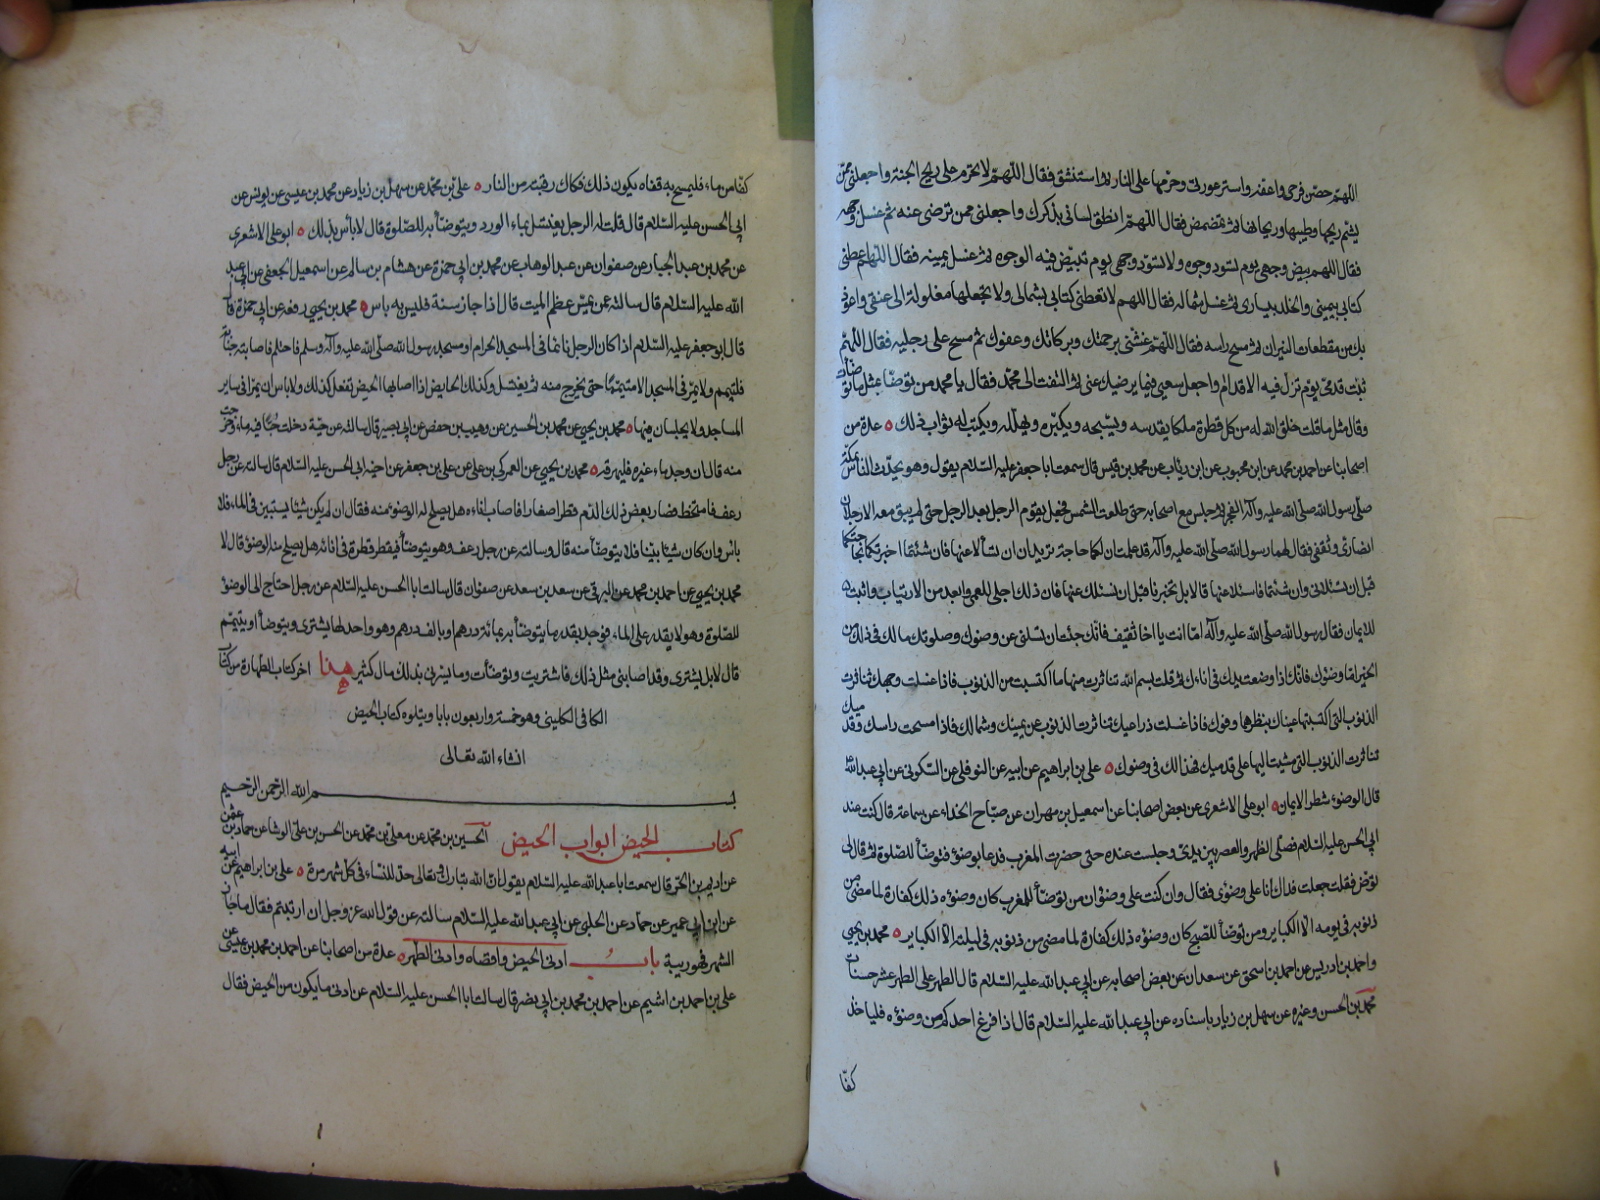 اللهم حصن فرجى واعفه واستر عورتى وحرمها على النار ثم استنشق فقال اللهم لا تحرم على ريح الجنة واجعلنى ممن
يشم ريحها وطيبها وريحانها ثم تمضمض فقال اللهم انطق لسانى بذكرك واجعلنى ممن ترضى عنه ثم غسل وجهه
فقال اللهم بيض وجهى يوم تسود وجوه ولا تسود وجهى يوم تبيض فيه الوجوه ثم غسل يمينه فقال اللهم اعطنى
كتابى بيمينى والخلد بيسارى ثم غسل شماله فقال اللهم لا تعطنى كتابى بشمالى ولا تجعلها مغلولة الى عنقى واعوذ
بك من مقطعات النيران ثم مسح راسه فقال اللهم غشنى برحمتك وبركاتك وعفوك ثم مسح على رجليه فقال اللهم
ثبت قدمى يوم تزل فيه الاقدام واجعل سعيى فيما يرضيك عنى ثم التفت الى محمد فقال يا محمد من توضأ بمثل ما توضأت
وقال مثل ما قلت خلق الله له من كل قطرة ملكا يقدسه ويسبحه ويكبره ويهلله ويكتب له ثواب ذلك ه عدة من
اصحابنا عن احمد بن محمد عن ابن محبوب عن ابن رئاب عن محمد بن قيس قال سمعت ابا جعفر عليه السلام يقول وهو يحدث الناس بمكة
صلى رسول الله صلى الله عليه وآله الفجر ثم جلس مع اصحابه حتى طلعت الشمس فجعل يقوم الرجل بعد الرجل حتى لم يبق معه الا رجلان
انصارى وثقفى فقال لهما رسول الله صلى الله عليه وآله قد علمت ان لكما حاجة تريدان ان تسألا عنها فان شئتما اخبرتكما بحاجتكما
قبل ان تسئلانى وان شئتما فاسئلا عنها قالا بل تخبرنا قبل ان نسئلك عنها فان ذلك اجلى للعمى وابعد من الارتياب واثبت
للايمان فقال رسول الله صلى الله عليه وآله اما انت يا اخا ثقيف فانك جئت ان تسئلنى عن وضوئك وصلوتك ما لك فى ذلك من
الخير اما وضوئك فانك اذا وضعت يدك فى اناءك ثم قلت بسم الله تناثرت منها ما اكتسبت من الذنوب فاذا غسلت وجهك تناثرت
الذنوب التى اكتسبتها عيناك بنظرهما وفوك فاذا غسلت ذراعيك تناثرت الذنوب عن يمينك وشمالك فاذا مسحت راسك وقدميك
تناثرت الذنوب التى مشيت اليها على قدميك فهذا لك فى وضوئك ه على بن ابراهيم عن ابيه عن النوفلى عن السكونى عن ابى عبد الله
قال الوضوء شطر الايمان ه ابو على الاشعرى عن بعض اصحابنا عن اسمعيل بن مهران عن صباح الحذاء عن سماعة قال كنت عند
ابى الحسن عليه السلام فصلى الظهر والعصر بين يدى وجلست عنده حتى حضرت المغرب فدعا بوضوء فتوضأ للصلوة ثم قال لى
توض فقلت جعلت فداك انا على وضوئى فقال وان كنت على وضوء ان من توضأ للمغرب كان وضوءه ذلك كفارة لما مضى من
ذنوبه فى يومه الا الكباير ومن توضأ للصبح كان وضوءه ذلك كفارة لما مضى من ذنوبه فى ليلته الا الكباير ه محمد بن يحيى
واحمد بن ادريس عن احمد بن اسحق عن سعدان عن بعض اصحابه عن ابى عبد الله عليه السلام قال الطهر على الطهر عشر حسنات
محمد بن الحسن وغيره عن سهل بن زياد باسناده عن ابى عبد الله عليه السلام قال اذا فرغ احدكم من وضوءه فلياخذ
كفا
كفا من ماء فليمسح به قفاه يكون ذلك فكاك رقبته من النار ه على بن محمد عن سهل بن زياد عن محمد بن عيسى عن يونس عن
ابى الحسن عليه السلام قال قلت له الرجل يغتسل بماء الورد ويتوضأ به للصلوة قال لا بأس بذلك ه ابو على الاشعرى
عن محمد بن عبد الجبار عن صفوان عن عبد الوهاب عن محمد بن ابى حمزة عن هشام بن سالم عن اسمعيل الجعفى عن ابى عبد
الله عليه السلام قال سالته عن مس عظم الميت قال اذا جاز سنة فليس به باس ه محمد بن يحيى رفعه عن ابى حمزة قال
قال ابو جعفر عليه السلام اذا كان الرجل نائما فى المسجد الحرام او مسجد رسول الله صلى الله عليه وآله وسلم فاحتلم فاصابته جنابة
فليتيمم ولا يمر فى المسجد الا متيمما حتى يخرج منه ثم يغتسل وكذلك الحايض اذا اصابها الحيض تفعل كذلك ولا باس ان يمرا فى ساير
المساجد ولا يجلسان فيها ه محمد بن يحيى عن محمد بن الحسين عن وهيب بن حفص عن ابى بصير قال سالته عن حية دخلت حبا فيه ماء وخرجت
منه قال ان وجد ماء غيره فليهرقه ه محمد بن يحيى عن العمركى بن على عن على بن جعفر عن اخيه ابى الحسن عليه السلام قال سالته عن رجل
رعف فامتخط فصار بعض ذلك الدم قطرا صغارا فاصاب اناءه هل يصلح له الوضوء منه فقال ان لم يكن شيئا يستبين فى الماء فلا
باس وان كان شيئا بينا فلا يتوضأ منه قال وسالته عن رجل رعف وهو يتوضأ فيقطر قطرة فى انائه هل يصلح منه الوضوء قال لا
محمد بن يحيى عن احمد بن محمد عن البرقى عن سعد بن سعد عن صفوان قال سالت ابا الحسن عليه السلام عن رجل احتاج الى الوضوء
للصلوة وهو لا يقدر على الماء فوجد بقدر ما يتوضأ به بمائة درهم او بالف درهم وهو واجد لها يشترى ويتوضأ او يتيمم
قال لا بل يشترى وقد اصابنى مثل ذلك فاشتريت وتوضأت وما يسرنى بذلك مال كثير هذا اخر كتاب الطهارة من كتاب
الكافى الكلينى وهو خمسة واربعون بابا ويتلوه كتاب الحيض
انشاء الله تعالى
بسم الله الرحمن الرحيم
كتاب الحيض ابواب الحيض الحسين بن محمد عن معلى بن محمد عن الحسن بن على الوشا عن حماد بن عثمن
عن اديم بن الحر قال سمعت ابا عبد الله عليه السلام يقول ان الله تبارك وتعالى حد للنساء فى كل شهر مرة ه على بن ابراهيم عن ابيه
عن ابن ابى عمير عن حماد عن الحلبى عن ابى عبد الله عليه السلام سالته عن قول الله عز وجل ان ارتبتم فقال ما جاز
الشهر فهو ريبة باب ادنى الحيض واقصاه وادنى الطهر ه عدة من اصحابنا عن احمد بن محمد بن عيسى عن
على بن احمد بن اشيم عن احمد بن محمد بن ابى نصر قال سالت ابا الحسن عليه السلام عن ادنى ما يكون من الحيض فقال